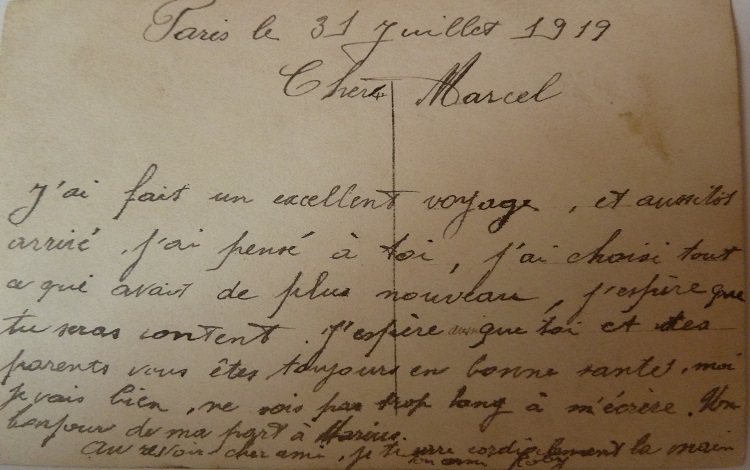 Paris le 31 Juillet 1919
Chere Marcel
J'ai fait un excellent voyage, et aussitôt
arrivé, j'ai pensé à toi, j'ai choisi tout
ce qui avait de plus nouveau, j'espère que
tu seras content. J'espère aussi que toi et tes
parents vous êtes toujours en bonne santé, moi
je vais bien, ne sois pas trop long à m'écrire. Un
bonjour de ma part à Marius
au revoir cher ami, je te serre cordialement la main
ton ami